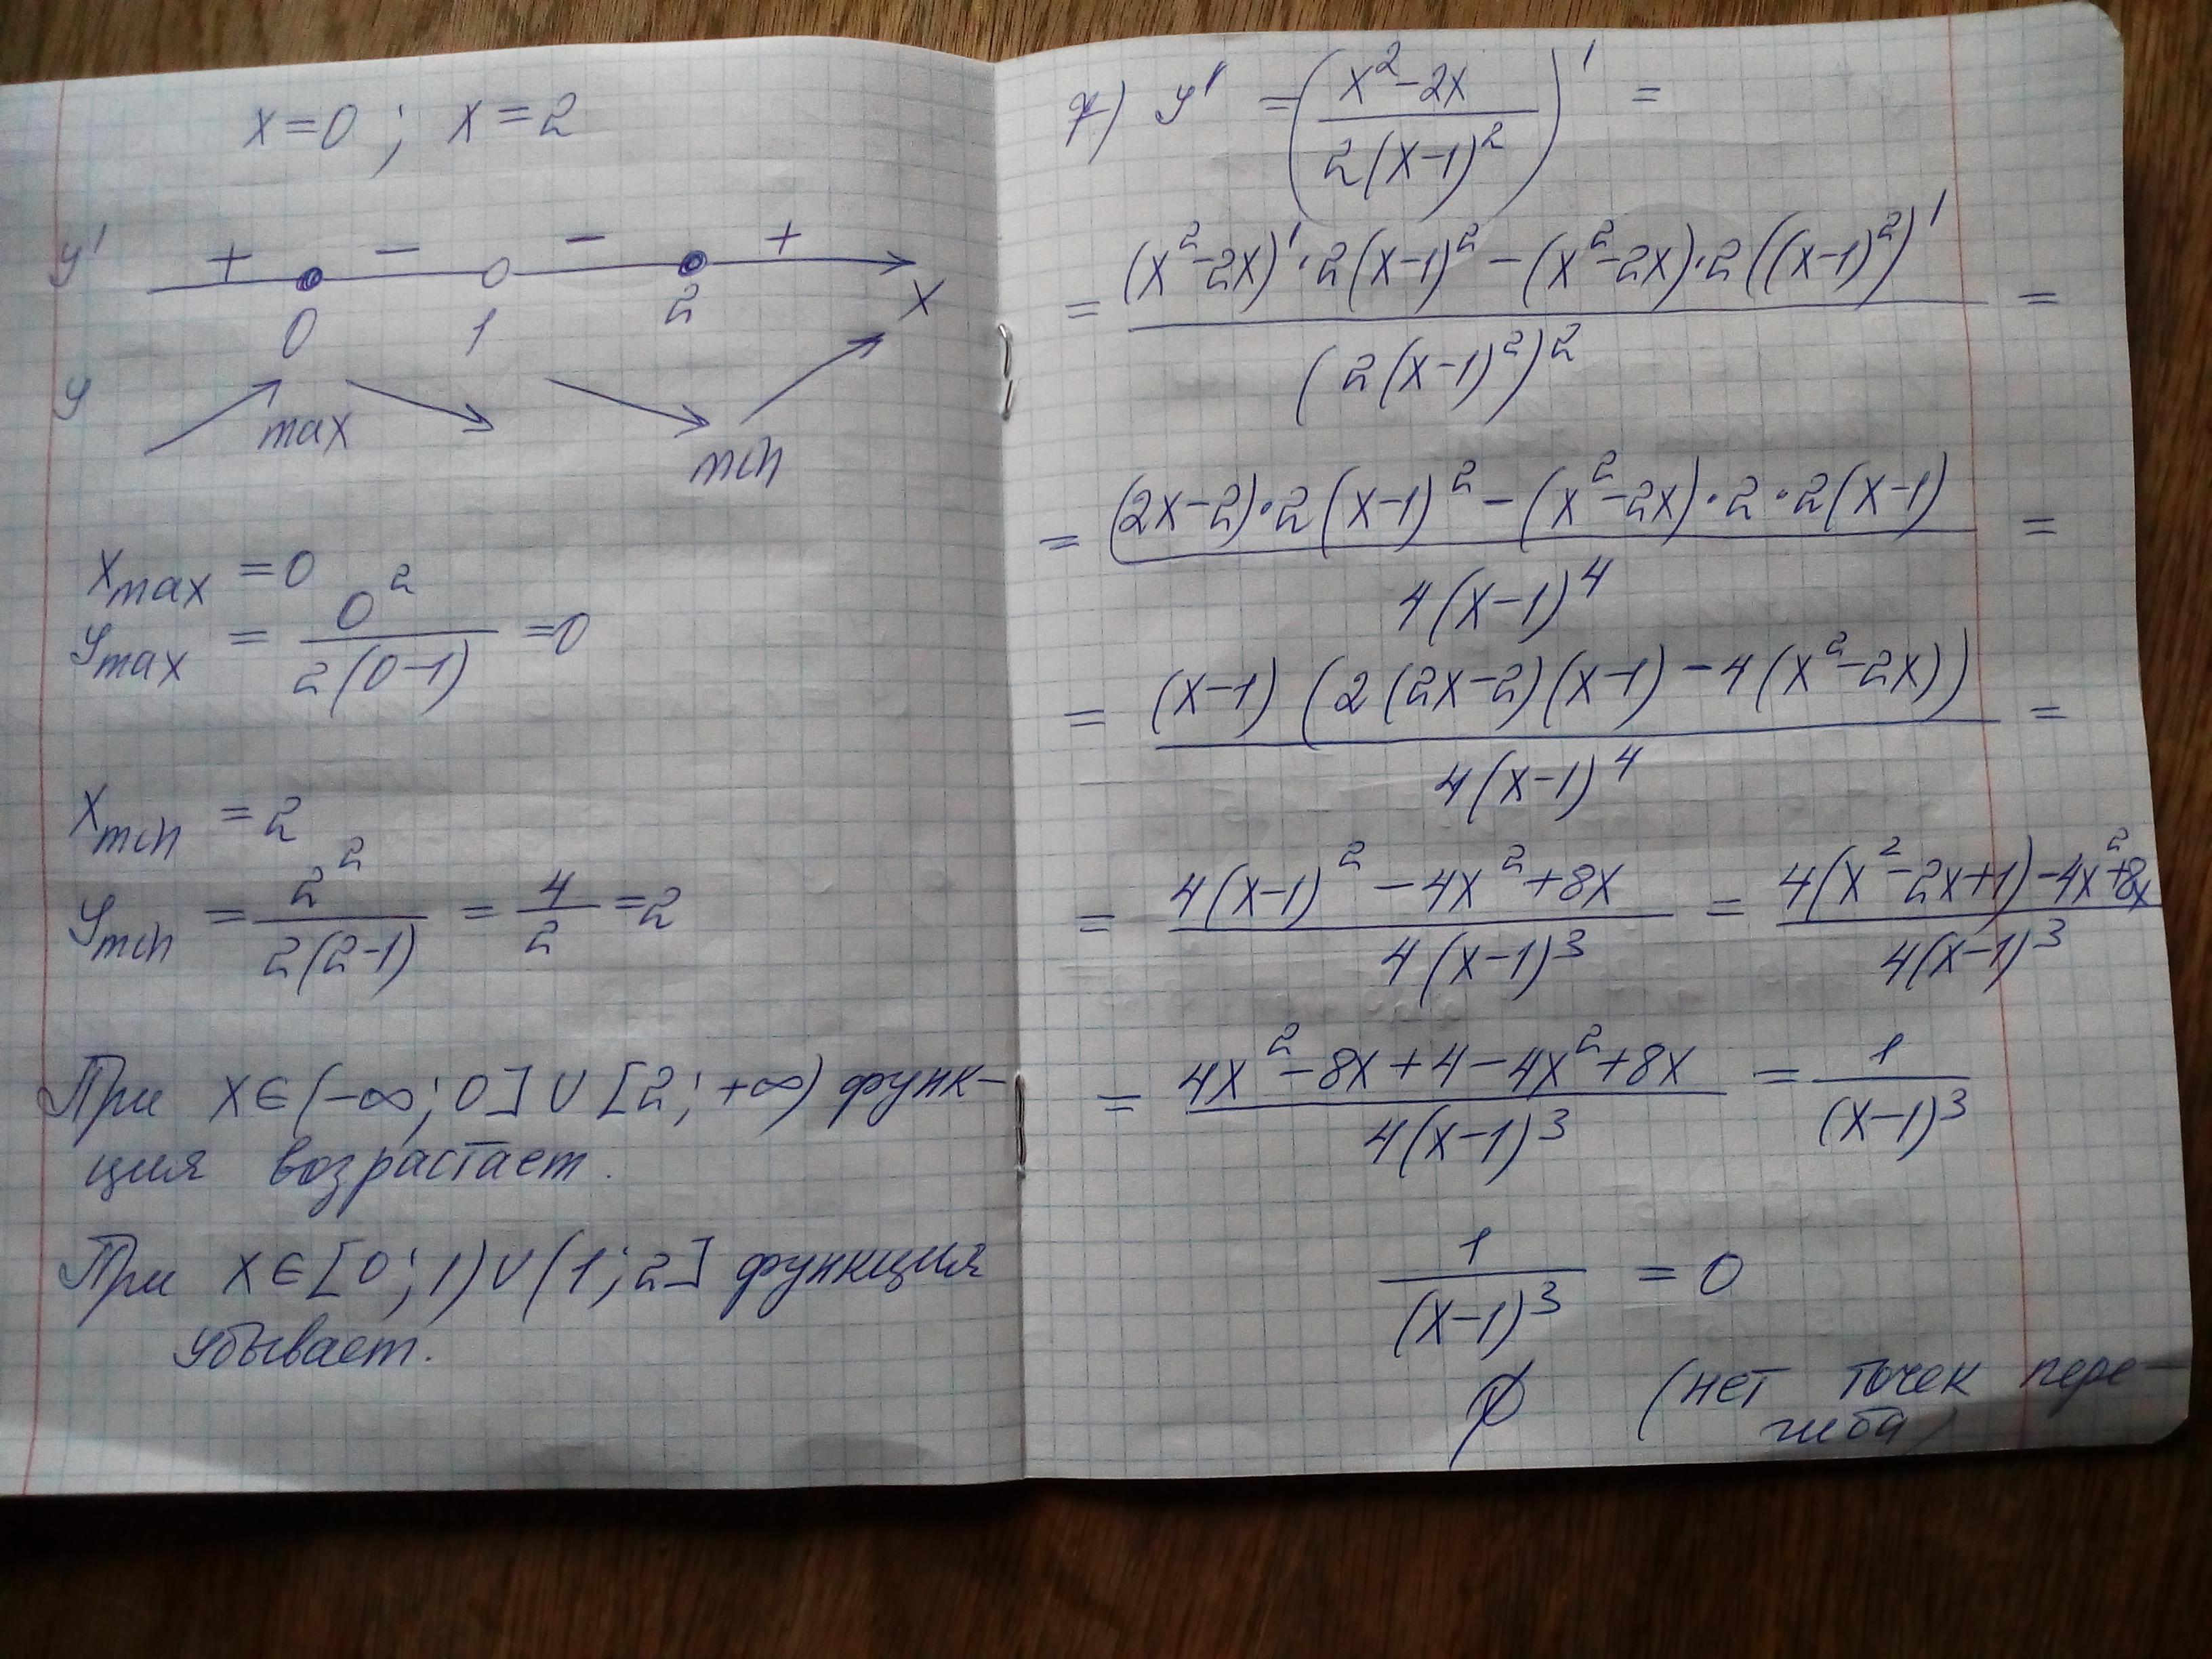 x=0; x=2
y' + − − + x
0 1 2
y max min
x_max = 0
y_max = 0²/(2(0−1)) = 0
x_min = 2
y_min = 2²/(2(2−1)) = 4/2 = 2
При x∈(−∞; 0]∪[2; +∞) функ-
ция возрастает.
При x∈[0; 1)∪(1; 2] функция
убывает.
7) y' = ((x²−2x)/(2(x−1)²))' =
= ((x²−2x)'·2(x−1)²−(x²−2x)·2((x−1)²)')/((2(x−1)²)²) =
= ((2x−2)·2(x−1)²−(x²−2x)·2·2(x−1))/(4(x−1)⁴) =
= ((x−1)(2(2x−2)(x−1)−4(x²−2x)))/(4(x−1)⁴) =
= (4(x−1)²−4x²+8x)/(4(x−1)³) = (4(x²−2x+1)−4x²+8x)/(4(x−1)³)
= (4x²−8x+4−4x²+8x)/(4(x−1)³) = 1/(x−1)³
1/(x−1)³ = 0
∅ (нет точек пере-
гиба)